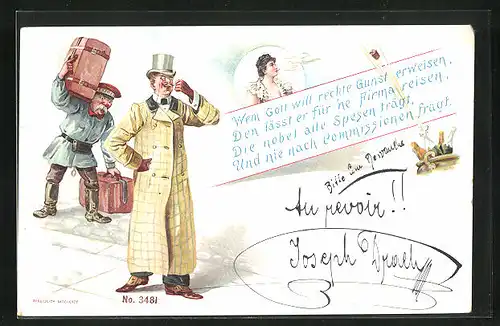 Wem Gott will rechte Gunst erweisen,
Den lässt er für 'ne Firma reisen,
Die nobel alle Spesen trägt,
Und nie nach Commissionen frägt.
Bitte um
Au revoir!!
Joseph
No. 3481